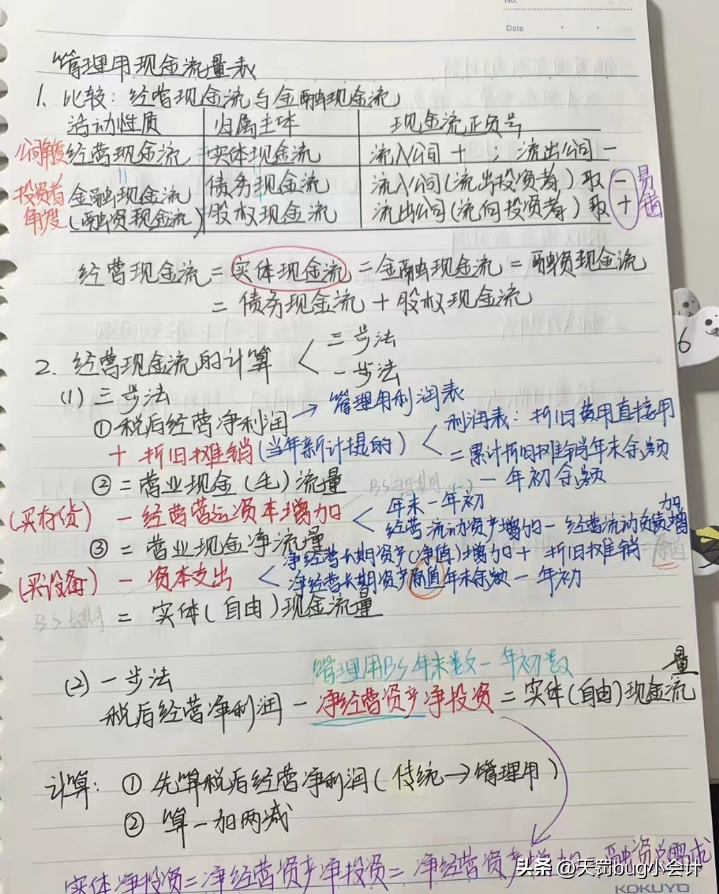 No.
Date
管理用现金流量表
1. 比较：经营现金流与金融现金流
活动性质 归属主体 现金流正负号
公司角度 经营现金流 实体现金流 流入公司 + ；流出公司 -
投资者角度 金融现金流 债务现金流 流入公司(流出投资者)取 - 易错
(融资现金流) 股权现金流 流出公司(流向投资者)取 +
经营现金流 = 实体现金流 = 金融现金流 = 融资现金流
= 债务现金流 + 股权现金流
6
2. 经营现金流的计算 < 三步法
一步法
(1) 三步法
① 税后经营净利润 → 管理用利润表
+ 折旧摊销(当年新计提的) < 利润表：折旧费用直接用
= 累计折旧摊销年末余额
- 年初余额
② = 营业现金(毛)流量
(买存货) - 经营营运资本增加 < 年末 - 年初
经营流动资产增加 - 经营流动负债增加
③ = 营业现金净流量
(买设备) - 资本支出 < 净经营长期资产(净值)增加 + 折旧摊销
净经营长期资产原值年末余额 - 年初
= 实体(自由)现金流量
(2) 一步法 管理用BS年末数 - 年初数
税后经营净利润 - 净经营资产净投资 = 实体(自由)现金流量
计算：① 先算税后经营净利润(传统→管理用)
② 算一加两减
实体净投资 = 净经营资产净投资 = 净经营资产
需求
头条 @天罚bug小会计
KOKUYO